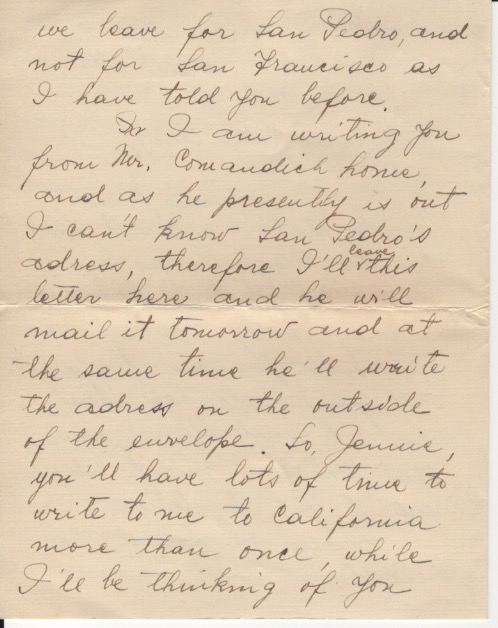 we leave for San Pedro, and
not for San Francisco as
I have told you before.
I am writing you
from Mr. Comandich home,
and as he presently is out
I can't know San Pedro's
adress, therefore I'll leave this
letter here and he will
mail it tomorrow and at
the same time he'll write
the adress on the outside
of the envelope. So, Jennie,
you'll have lots of time to
write to me to California
more than once, while
I'll be thinking of you